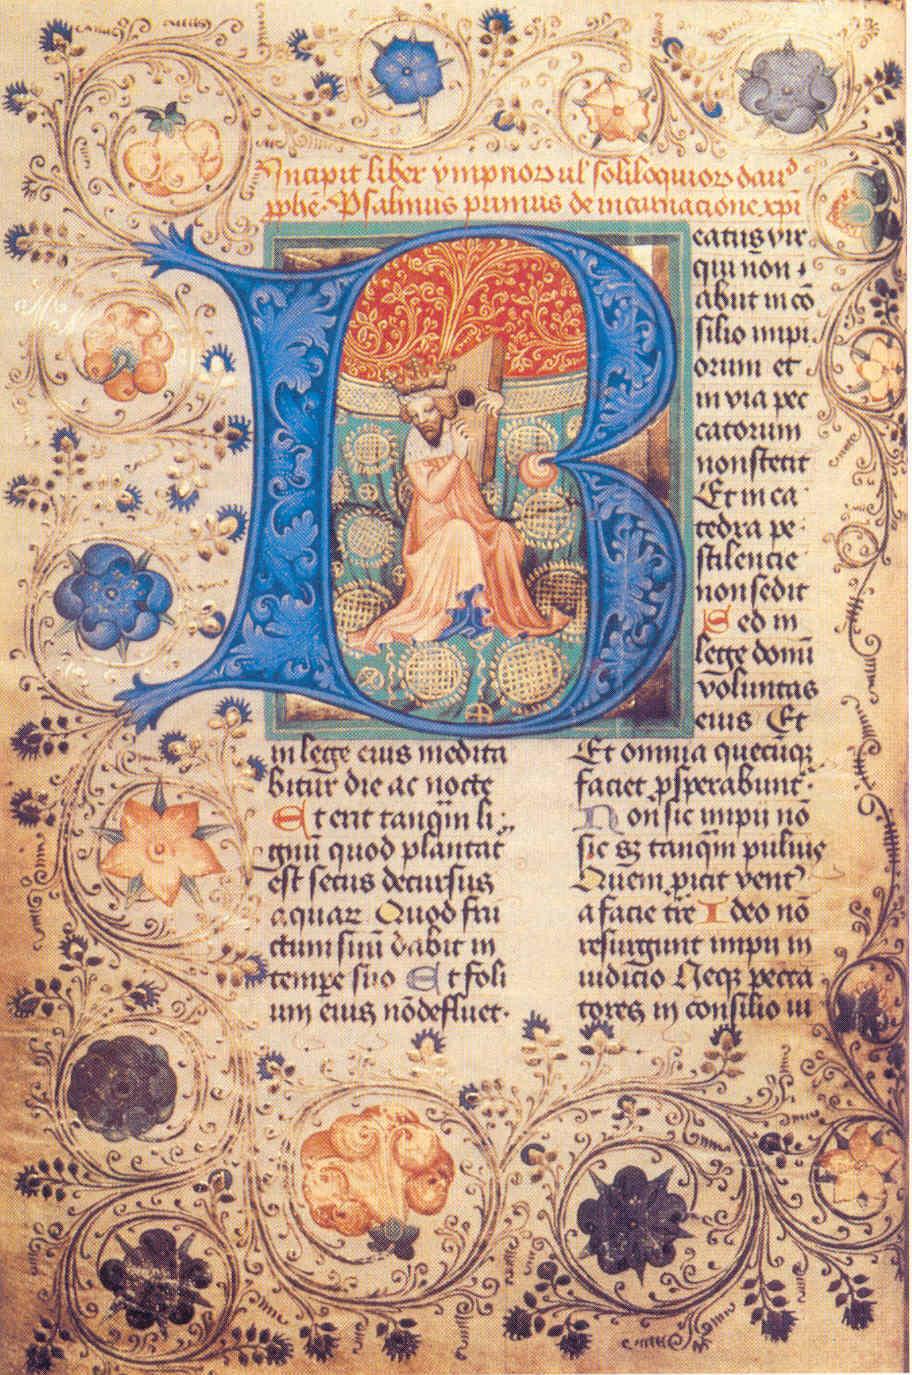 Incipit liber ympnorꝫ ul' soliloquiorꝫ dauᵈ
pphē Psalmus primus de incarnacione xpi
Beatus vir
qui non
abiit in cō
silio impi
orum et
in via pec
catorum
non stetit
Et in ca
tedra pe
stilencie
non sedit
Sed in
lege domī
voluntas
eius Et
in lege eius medita
bitur die ac nocte
Et erit tanqm̄ li
gnū quod plantat̄
est secus decursus
aquaꝝ Quod fru
ctum suū dabit in
tempe suo Et foli
um eius nō defluet
Et omnia quecūqꝫ
faciet ꝓsperabunt᷑
Non sic impii nō
sic sꝫ tanqm̄ puluis
Quem ꝓicit vent᷒
a facie tr̄e Ideo nō
resurgunt impii in
iudicio Neqꝫ pecca
tores in consilio iu